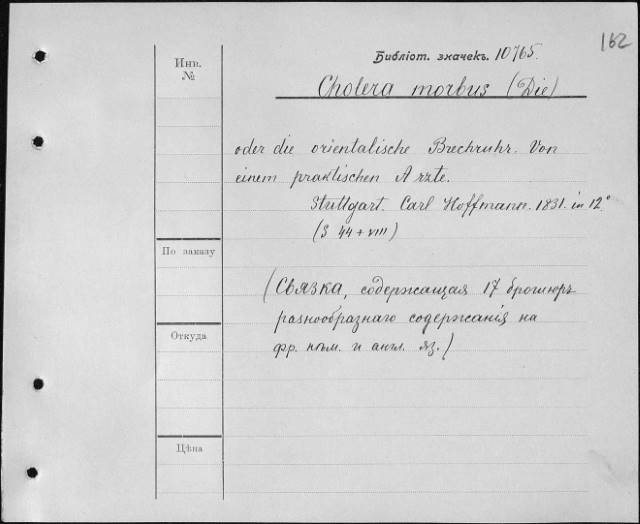 162
Библіот. значекъ. 10765.
Инв.
№
Cholera morbus (Die)
oder die orientalische Brechruhr. Von
einem praktischen Arzte.
Stuttgart. Carl Hoffmann. 1831. in 12°
(S 44 + VIII)
По заказу
(Связка, содержащая 17 брошюръ
разнообразнаго содержанія на
фр. нѣм. и англ. яз.)
Откуда
Цѣна